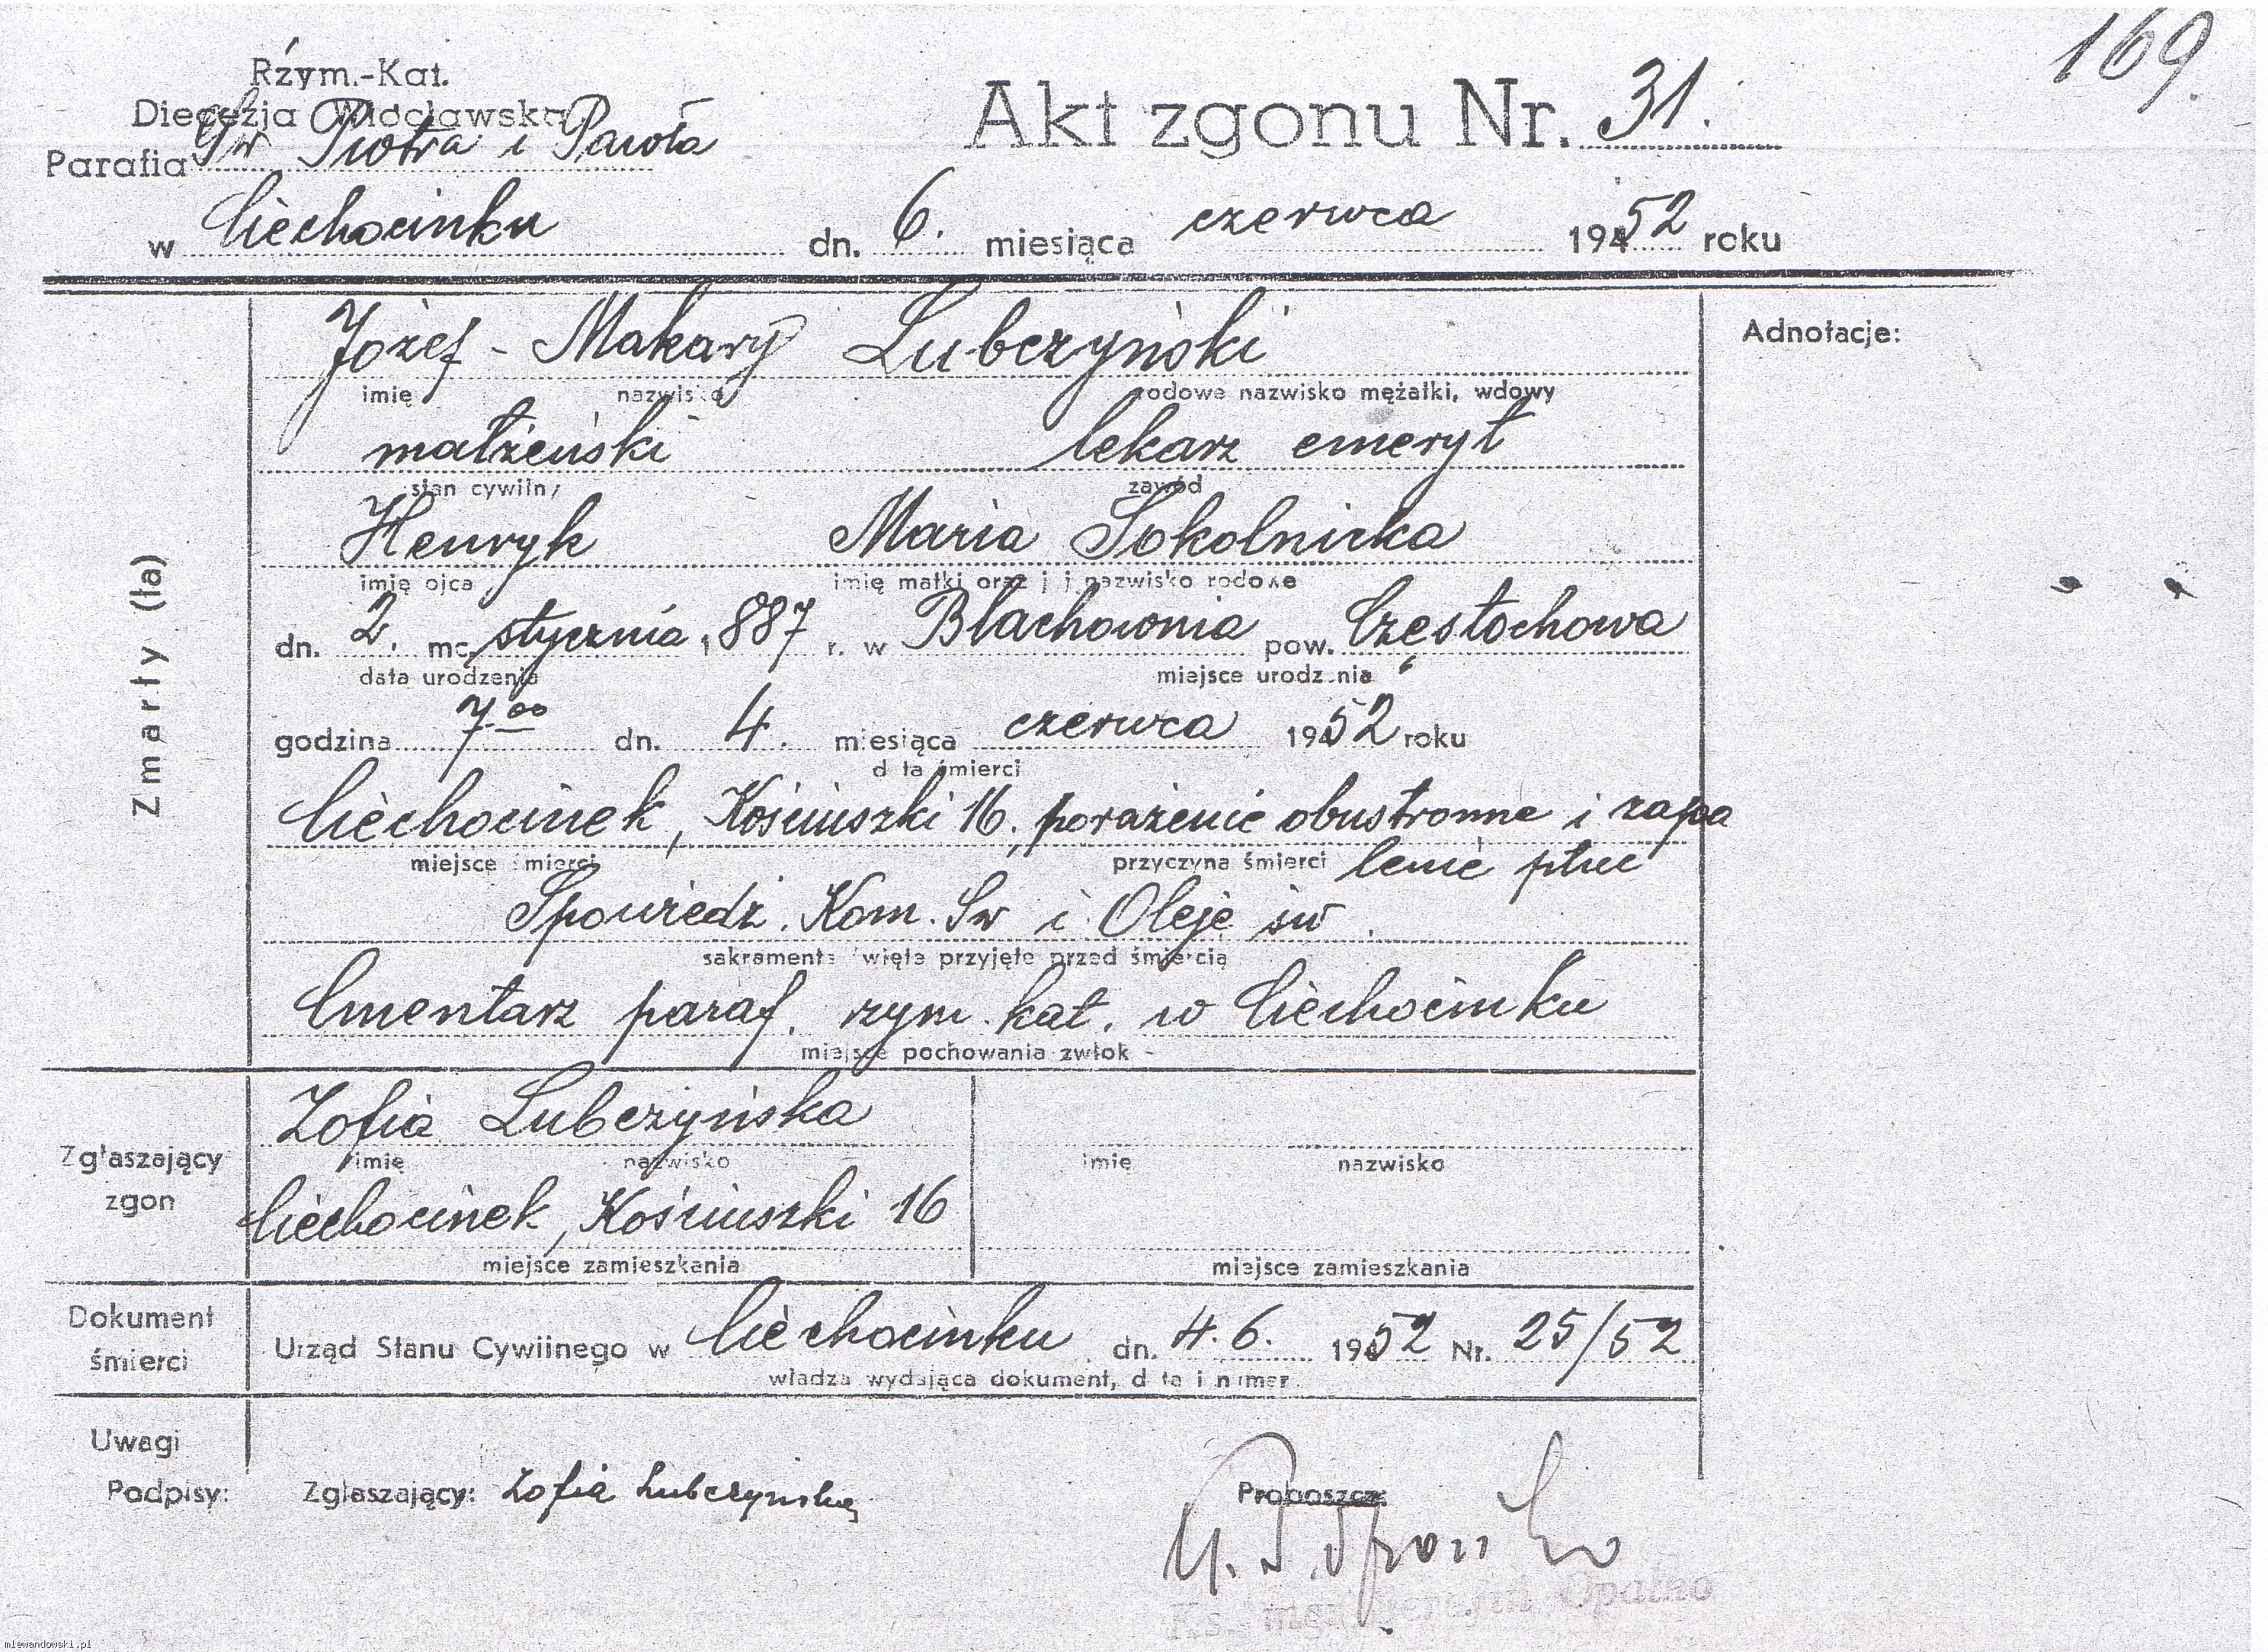 169.
Rzym.-Kat.
Diecezja Włocławska
Akt zgonu Nr. 31.
Parafia Św Piotra i Pawła
w Ciechocinku dn. 6. miesiąca czerwca 1952 roku
Adnotacje:
Józef - Makary Lubczyński
imię nazwisko rodowe nazwisko mężatki, wdowy
małżeński lekarz emeryt
stan cywilny zawód
Henryk Maria Sokolnicka
imię ojca imię matki oraz jej nazwisko rodowe
Zmarły (ła)
dn. 2. mc. stycznia 1887 r. w Blachownia pow. Częstochowa
data urodzenia miejsce urodzenia
godzina 7 00 dn. 4. miesiąca czerwca 1952 roku
data śmierci
Ciechocinek, Kościuszki 16, porażenie obustronne i zapa
miejsce śmierci przyczyna śmierci lenie płuc
Spowiedź. Kom. Św i Oleje św.
sakramenta święte przyjęte przed śmiercią
Cmentarz paraf. rzym. kat. w Ciechocinku
miejsce pochowania zwłok -
Zofia Lubczyńska
Zgłaszający zgon
imię nazwisko imię nazwisko
Ciechocinek, Kościuszki 16
miejsce zamieszkania miejsce zamieszkania
Dokument śmierci
Urząd Stanu Cywilnego w Ciechocinku dn. 4.6. 1952 Nr. 25/52
władza wydająca dokument, data i numer
Uwagi
Podpisy: Zgłaszający: Zofia Lubczyńska Proboszcz:
Ks. Opatko
mlewandowski.pl